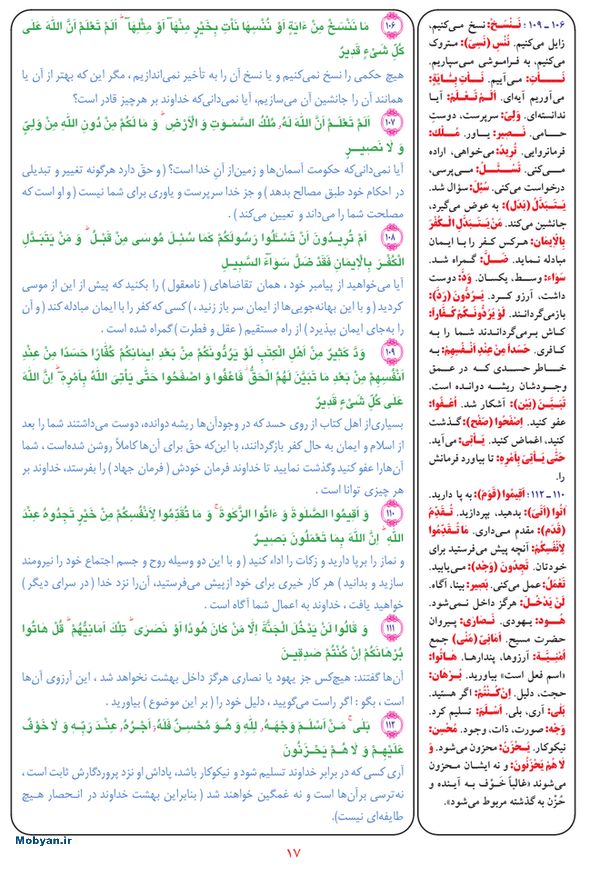 ۱۰۶ مَا نَنْسَخْ مِنْ ءَايَةٍ أَوْ نُنْسِهَا نَأْتِ بِخَيْرٍ مِنْهَآ أَوْ مِثْلِهَآ ۗ أَلَمْ تَعْلَمْ أَنَّ اللَّهَ عَلَى
كُلِّ شَىْءٍ قَدِيرٌ
هیچ حکمی را نسخ نمی‌کنیم و یا نسخ آن را به تأخیر نمی‌اندازیم ، مگر این که بهتر از آن یا
همانند آن را جانشین آن می‌سازیم، آیا نمی‌دانی‌که خداوند بر هرچیز قادر است؟
۱۰۷ أَلَمْ تَعْلَمْ أَنَّ اللَّهَ لَهُ مُلْكُ السَّمَوَتِ وَ الْأَرْضِ ۗ وَ مَا لَكُمْ مِنْ دُونِ اللَّهِ مِنْ وَلِىٍّ
وَ لَا نَصِيرٍ
آیا نمی‌دانی‌که حکومت آسمان‌ها و زمین‌از آنِ خدا است؟ ( و حق دارد هرگونه تغییر و تبدیلی
در احکام خود طبق مصالح بدهد ) و جز خدا سرپرست و یاوری برای شما نیست ( و او است که
مصلحت شما را می‌داند و تعیین می‌کند ) .
۱۰۸ أَمْ تُرِيدُونَ أَنْ تَسْـَٔلُوا رَسُولَكُمْ كَمَا سُئِلَ مُوسَى مِنْ قَبْلُ ۗ وَ مَنْ يَتَبَدَّلِ
الْكُفْرَ بِالْإِيمَانِ فَقَدْ ضَلَّ سَوَآءَ السَّبِيلِ
آیا می‌خواهید از پیامبر خود ، همان تقاضاهای ( نامعقول ) را بکنید که پیش از این از موسی
کردید ( و با این بهانه‌جویی‌ها از ایمان سر باز زنید ، ) کسی که کفر را با ایمان مبادله کند ( و آن
را به‌جای ایمان بپذیرد ) از راه مستقیم ( عقل و فطرت ) گمراه شده است .
۱۰۹ وَدَّ كَثِيرٌ مِنْ أَهْلِ الْكِتَبِ لَوْ يَرُدُّونَكُمْ مِنْ بَعْدِ إِيمَانِكُمْ كُفَّارًا حَسَدًا مِنْ عِنْدِ
أَنْفُسِهِمْ مِنْ بَعْدِ مَا تَبَيَّنَ لَهُمُ الْحَقُّ ۖ فَاعْفُوا وَ اصْفَحُوا حَتَّى يَأْتِىَ اللَّهُ بِأَمْرِهِ ۗ إِنَّ اللَّهَ
عَلَى كُلِّ شَىْءٍ قَدِيرٌ
بسیاری‌از اهل کتاب از روی حسد که در وجودآن‌ها ریشه دوانده، دوست می‌داشتند شما را بعد
از اسلام و ایمان به حال کفر بازگردانند، با این‌که حق برای آن‌ها کاملاً روشن شده‌است ، شما
آن‌هارا عفو کنید وگذشت نمایید تا خداوند فرمان خودش ( فرمان جهاد ) را بفرستد، خداوند بر
هر چیزی توانا است .
۱۱۰ وَ أَقِيمُوا الصَّلَوةَ وَ ءَاتُوا الزَّكَوةَ ۚ وَ مَا تُقَدِّمُوا لِأَنْفُسِكُمْ مِنْ خَيْرٍ تَجِدُوهُ عِنْدَ
اللَّهِ ۗ إِنَّ اللَّهَ بِمَا تَعْمَلُونَ بَصِيرٌ
و نماز را برپا دارید و زکات را اداء کنید ( و با این دو وسیله روح و جسم اجتماع خود را نیرومند
سازید و بدانید ) هر کار خیری برای خود ازپیش می‌فرستید، آن‌را نزد خدا ( در سرای دیگر )
خواهید یافت ، خداوند به اعمال شما آگاه است .
۱۱۱ وَ قَالُوا لَنْ يَدْخُلَ الْجَنَّةَ إِلَّا مَنْ كَانَ هُودًا أَوْ نَصَرَى ۗ تِلْكَ أَمَانِيُّهُمْ ۗ قُلْ هَاتُوا
بُرْهَانَكُمْ إِنْ كُنْتُمْ صَدِقِينَ
آن‌ها گفتند: هیچ‌کس جز یهود یا نصاری هرگز داخل بهشت نخواهد شد ، این آرزوی آن‌ها
است ، بگو : اگر راست می‌گویید ، دلیل خود را ( بر این موضوع ) بیاورید .
۱۱۲ بَلَى ۚ مَنْ أَسْلَمَ وَجْهَهُ لِلَّهِ وَ هُوَ مُحْسِنٌ فَلَهُ أَجْرُهُ عِنْدَ رَبِّهِ وَ لَا خَوْفٌ
عَلَيْهِمْ وَ لَا هُمْ يَحْزَنُونَ
آری کسی که در برابر خداوند تسلیم شود و نیکوکار باشد، پاداش او نزد پروردگارش ثابت است ،
نه‌ترسی برآن‌ها است و نه غمگین خواهند شد ( بنابراین بهشت خداوند در انحصار هیچ
طایفه‌ای نیست).
۱۰۶ ـ ۱۰۹ : نَنْسَخْ: نسخ می‌کنیم،
زایل می‌کنیم. نُنْسِ (نَسِیَ): متروک
می‌کنیم، به فراموشی می‌سپاریم.
نَـأْتِ: می‌آییم. نَـأْتِ بِئَايَةٍ:
می‌آوریم آیه‌ای. أَلَمْ تَعْلَمْ: آیا
ندانسته‌ای. وَلِیّ: سرپرست، دوست،
حامی. نَصِیر: یاور. مُلْك:
فرمانروایی. تُرِیدُ: می‌خواهی، اراده
می‌کنی. تَسْـَٔلُ: می‌پرسی،
درخواست می‌کنی. سُئِلَ: سؤال شد.
يَتَبَدَّلُ (بَدَل): به عوض می‌گیرد،
جانشین می‌کند. مَنْ يَتَبَدَّلِ الْكُفْرَ
بِالْإِيمَانِ: هرکس کفر را با ایمان
مبادله نماید. ضَلَّ: گمراه شد.
سَوَاء: وسط، یکسان. وَدَّ: دوست
داشت، آرزو کرد. يَرُدُّونَ (رَدَّ):
بازمی‌گردانند. لَوْ يَرُدُّونَكُمْ كُفَّارًا:
کاش برمی‌گرداندند شما را به
کافری. حَسَداً مِنْ عِنْدِ أَنْفُسِهِمْ: به
خاطر حسدی که در عمق
وجودشان ریشه دوانده است.
تَبَيَّنَ (بَيَّنَ): آشکار شد. أُعْفُوا:
عفو کنید. اِصْفَحُوا (صَفَحَ): گذشت
کنید، اغماض کنید. يَأْتِی: می‌آید.
حَتَّى يَأْتِیَ بِأَمْرِهِ: تا بیاورد فرمانش
را.
۱۱۰ ـ ۱۱۲ : أَقِيمُوا (قَوَمَ): به پا دارید.
اتُوا (أَتَیَ): بدهید، بپردازید. تُقَدِّمُ
(قَدَمَ): مقدم می‌داری. مَا تُقَدِّمُوا
لِأَنْفُسِكُمْ: آنچه پیش می‌فرستید برای
خودتان. تَجِدُونَ (وَجَدَ): می‌یابید.
تَعْمَلُ: عمل می‌کنی. بَصِیر: بینا، آگاه.
لَنْ يَدْخُلَ: هرگز داخل نمی‌شود.
هُود: یهودی. نَصَارَى: پیروان
حضرت مسیح. أَمَانِیّ (مَنَیَ) جمع
أُمْنِيَّة: آرزوها، پندارها. هَاتُوا:
«اسم فعل است» بیاورید. بُرْهَان:
حجت، دلیل. إِنْ كُنْتُمْ: اگر هستید.
بَلَى: آری، بلی. أَسْلَمَ: تسلیم کرد.
وَجْه: صورت، ذات، وجود. مُحْسِن:
نیکوکار. يَحْزَنُ: محزون می‌شود. وَ
لَا هُمْ يَحْزَنُونَ: و نه ایشان محزون
می‌شوند «غالباً خَوْف به آینده و
حُزْن به گذشته مربوط می‌شود».
Mobyan.ir
۱۷